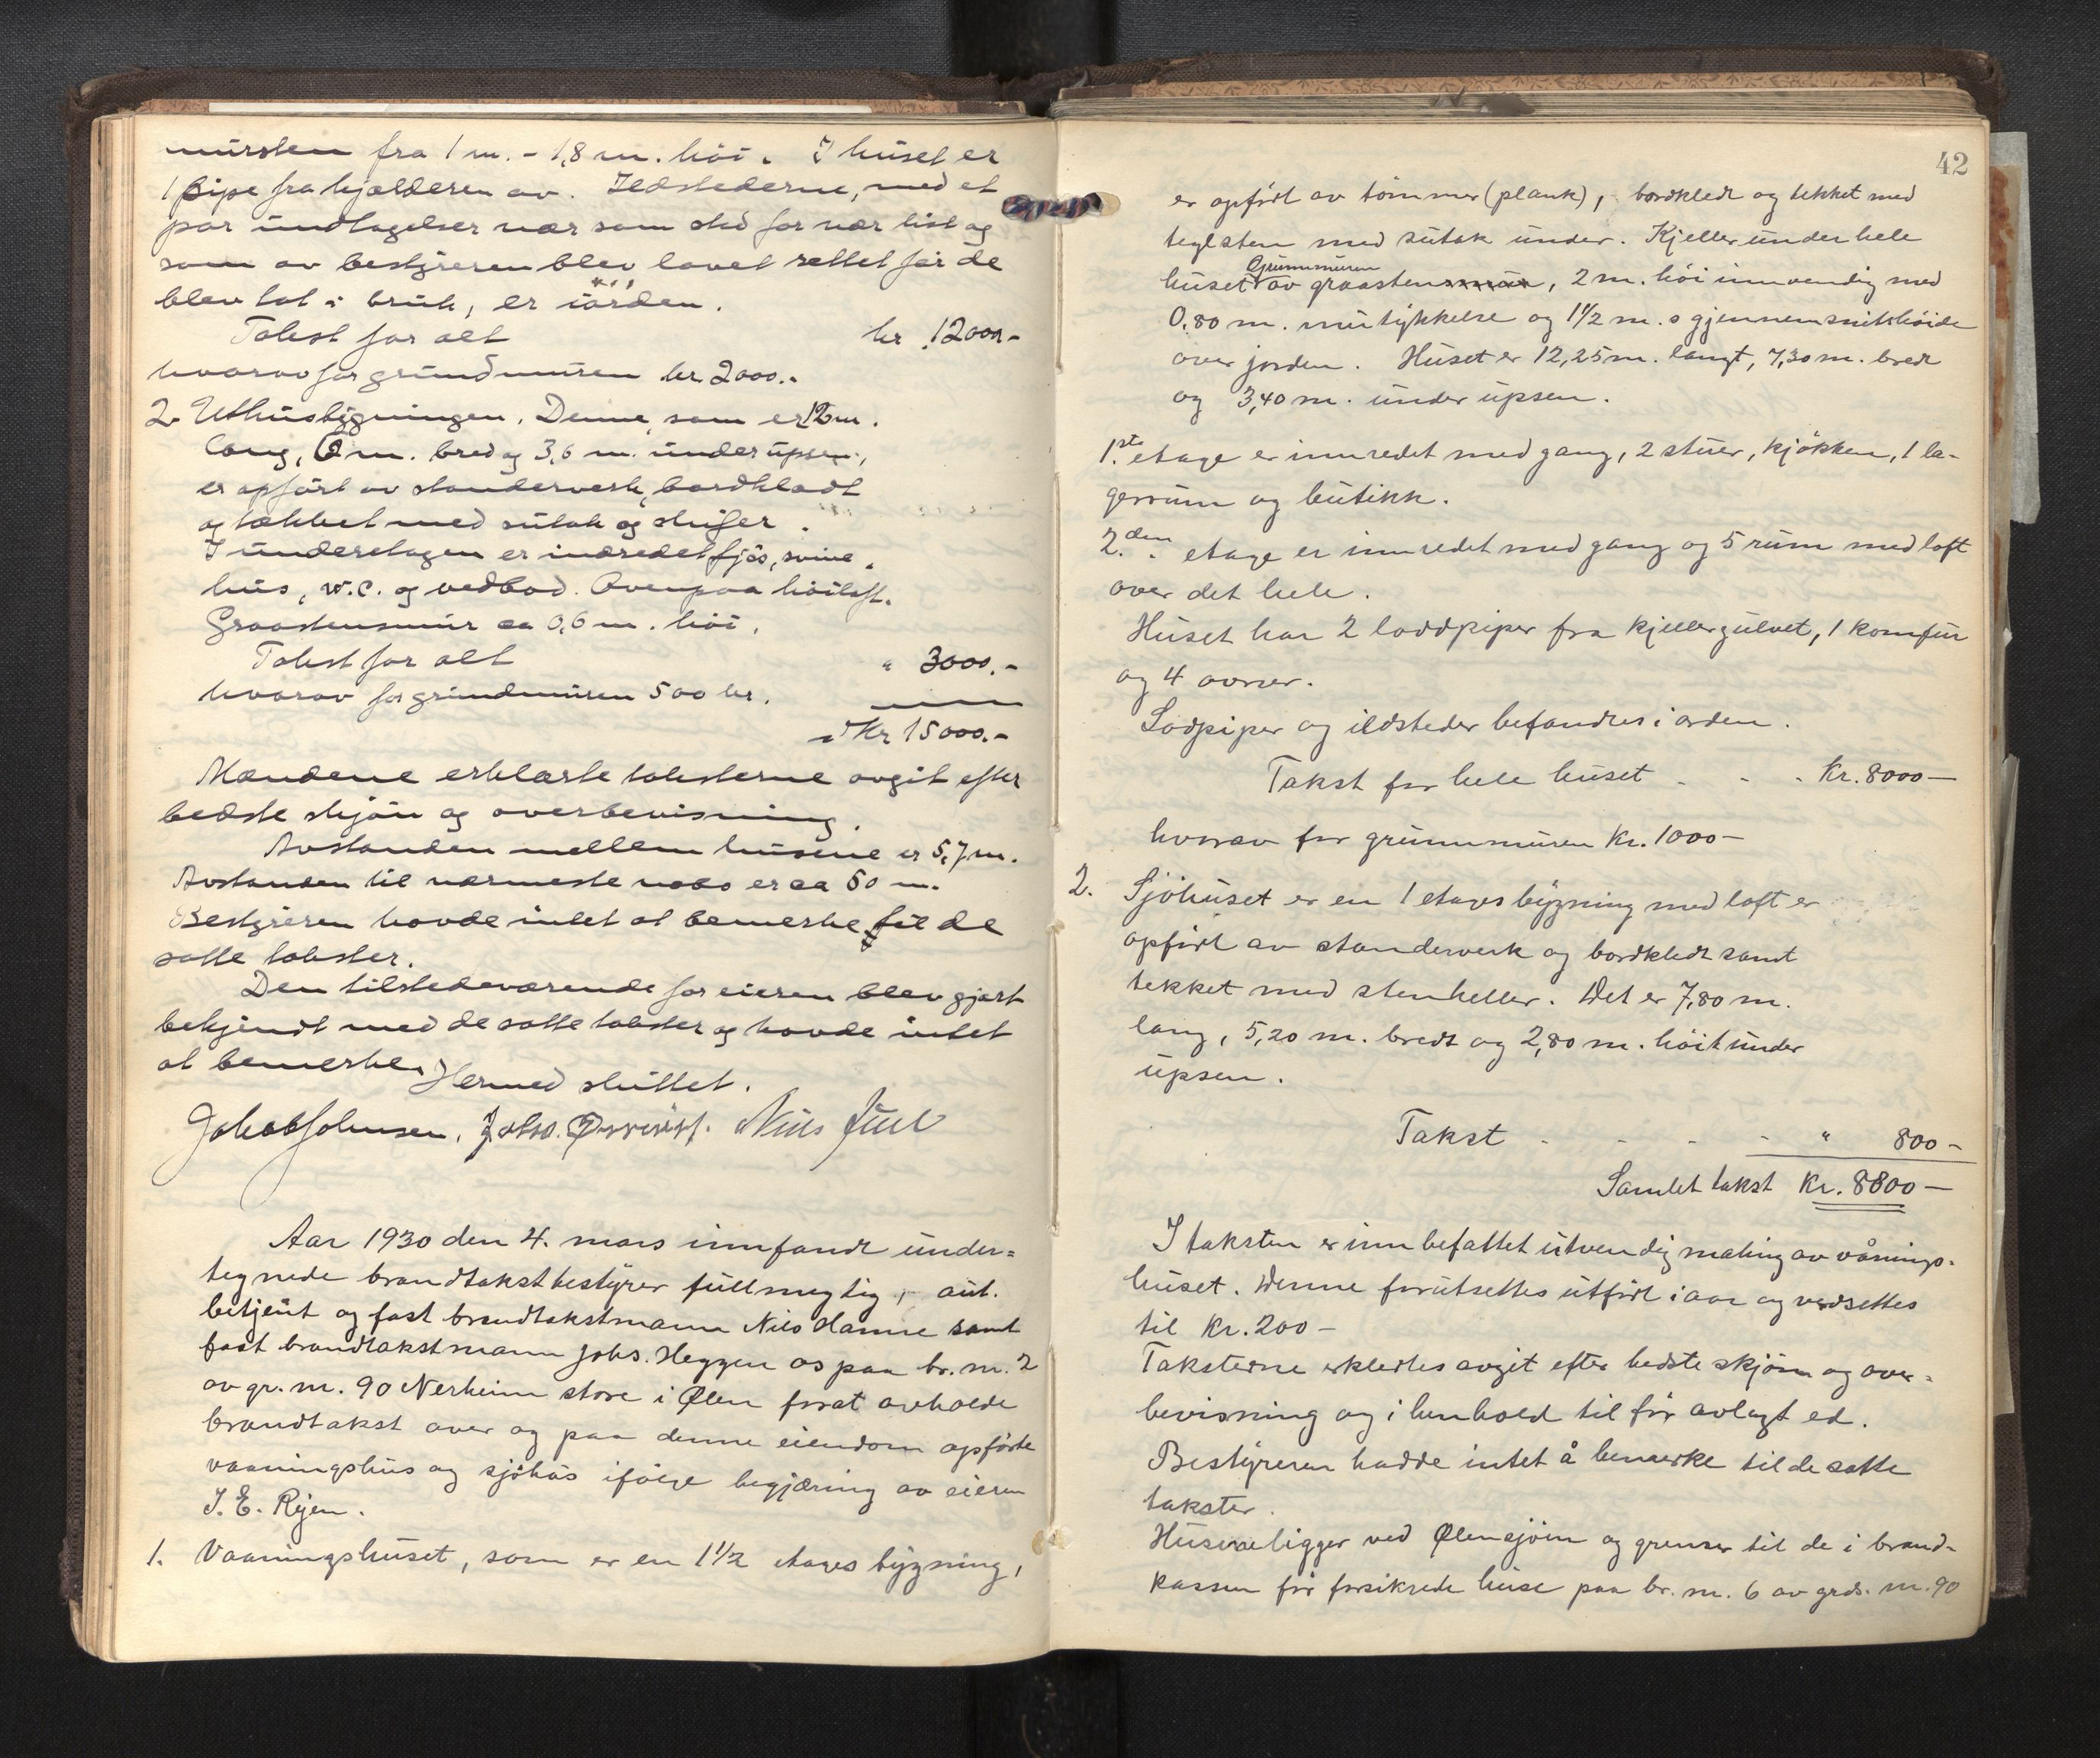 mursten fra 1 m. - 1,8 m. höi. I huset er
1 pipe fra kjælderen av. Ildstederne, med et
par undtagelser nær som sted for nær list og
som av bestyreren blev lovet rettet før de
blev tat i bruk, er i orden.
Takst for alt kr. 12000.-
hvorav for grundmuren kr. 2000.-
2. Uthusbygningen. Denne, som er 12 m.
lang, 6 m. bred og 3,6 m. under upsen,
er opført av standerverk, bordklædt
og tækket med sutak og skifer.
I underetagen er indredet fjøs, svine-
hus, w.c. og vedbod. Ovenpaa höiloft.
Graastensmur ca 0,6 m. höi.
Takst for alt " 3000.-
hvorav for grundmuren 500 kr.
Kr 15000.-
Mændene erklærte taksterne avgit efter
bedste skjön og overbevisning.
Avstanden mellem husene er 5,7 m.
Avstanden til nærmeste nabo er ca 50 m.
Bestyreren havde intet at bemerke til de
satte takster.
Den tilstedeværende for eieren blev gjort
bekjendt med de satte takster og havde intet
at bemerke. Hermed sluttet.
Jakob Johnsen. Johs. Nils Juul
Aar 1930 den 4. mars innfandt under=
tegnede brandtakstbestyrer fullmegtig, aut.
betjent og fast brandtakstmann Nils Hamre samt
fast brandtakstmann Johs. Heggen os paa br. nr. 2
av gr. nr. 90 Nerheim store i Ølen forat avholde
brandtakst over og paa denne eiendom opförte
vaaningshus og sjöhus ifölge begjæring av eieren
J. E. Rijen.
1. Vaaningshuset, som er en 1 1/2 etages bygning,
42
er opfört av tömmer (plank), bordkledt og tekket med
teglsten med sutak under. Kjeller under hele
huset Grunnmuren av graasten, 2 m. höi innvendig med
0.80 m. murtykkelse og 1 1/2 m.s gjennemsnitshöide
over jorden. Huset er 12,25 m. langt, 7,30 m. bredt
og 3,40 m. under upsen.
1.ste etage er innredet med gang, 2 stuer, kjökken, 1 la-
gerrum og butikk.
2.den etage er innredet med gang og 5 rum med loft
over det hele.
Huset har 2 loddpiper fra kjellergulvet, 1 komfur
og 4 ovner.
Lodpiper og ildsteder befandtes i orden.
Takst for hele huset - - - Kr. 8000—
hvorav for grunnmuren Kr. 1000-
2. Sjöhuset er en 1 etages bygning med loft er
opfört av standerverk og bordkledt samt
tekket med stenheller. Det er 7,80 m.
lang, 5,20 m. bredt og 2,80 m. höit under
upsen.
Takst - - - - " 800-
Samlet takst Kr. 8800—
I taksten er innbefattet utvendig maling av vånings-
huset. Denne forutsettes utfört i aar og verdsettes
til Kr. 200-
Taksterne erklertes avgit efter bedste skjönn og over=
bevisning og i henhold til för avlagt ed.
Bestyreren hadde intet å bemerke til de satte
takster.
Husene ligger ved Ølensjöen og grenser til de i brand-
kassen för forsikrede huse paa br. nr. 6 av grds. nr. 90